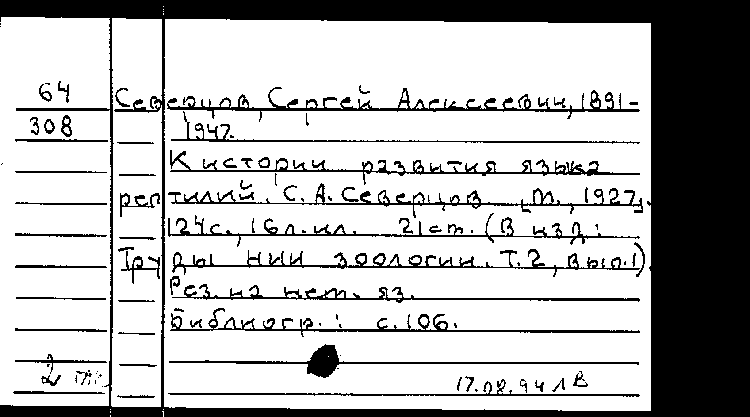 64
308
Северцов, Сергей Алексеевич, 1891-
1947.
К истории развития языка
рептилий. С. А. Северцов [М., 1927].
124с., 16л.ил. 21см. (В изд:
Труды НИИ зоологии. Т.2, вып.1).
Рез. на нем. яз.
Библиогр.: с.106.
2
17.08.94 ЛВ